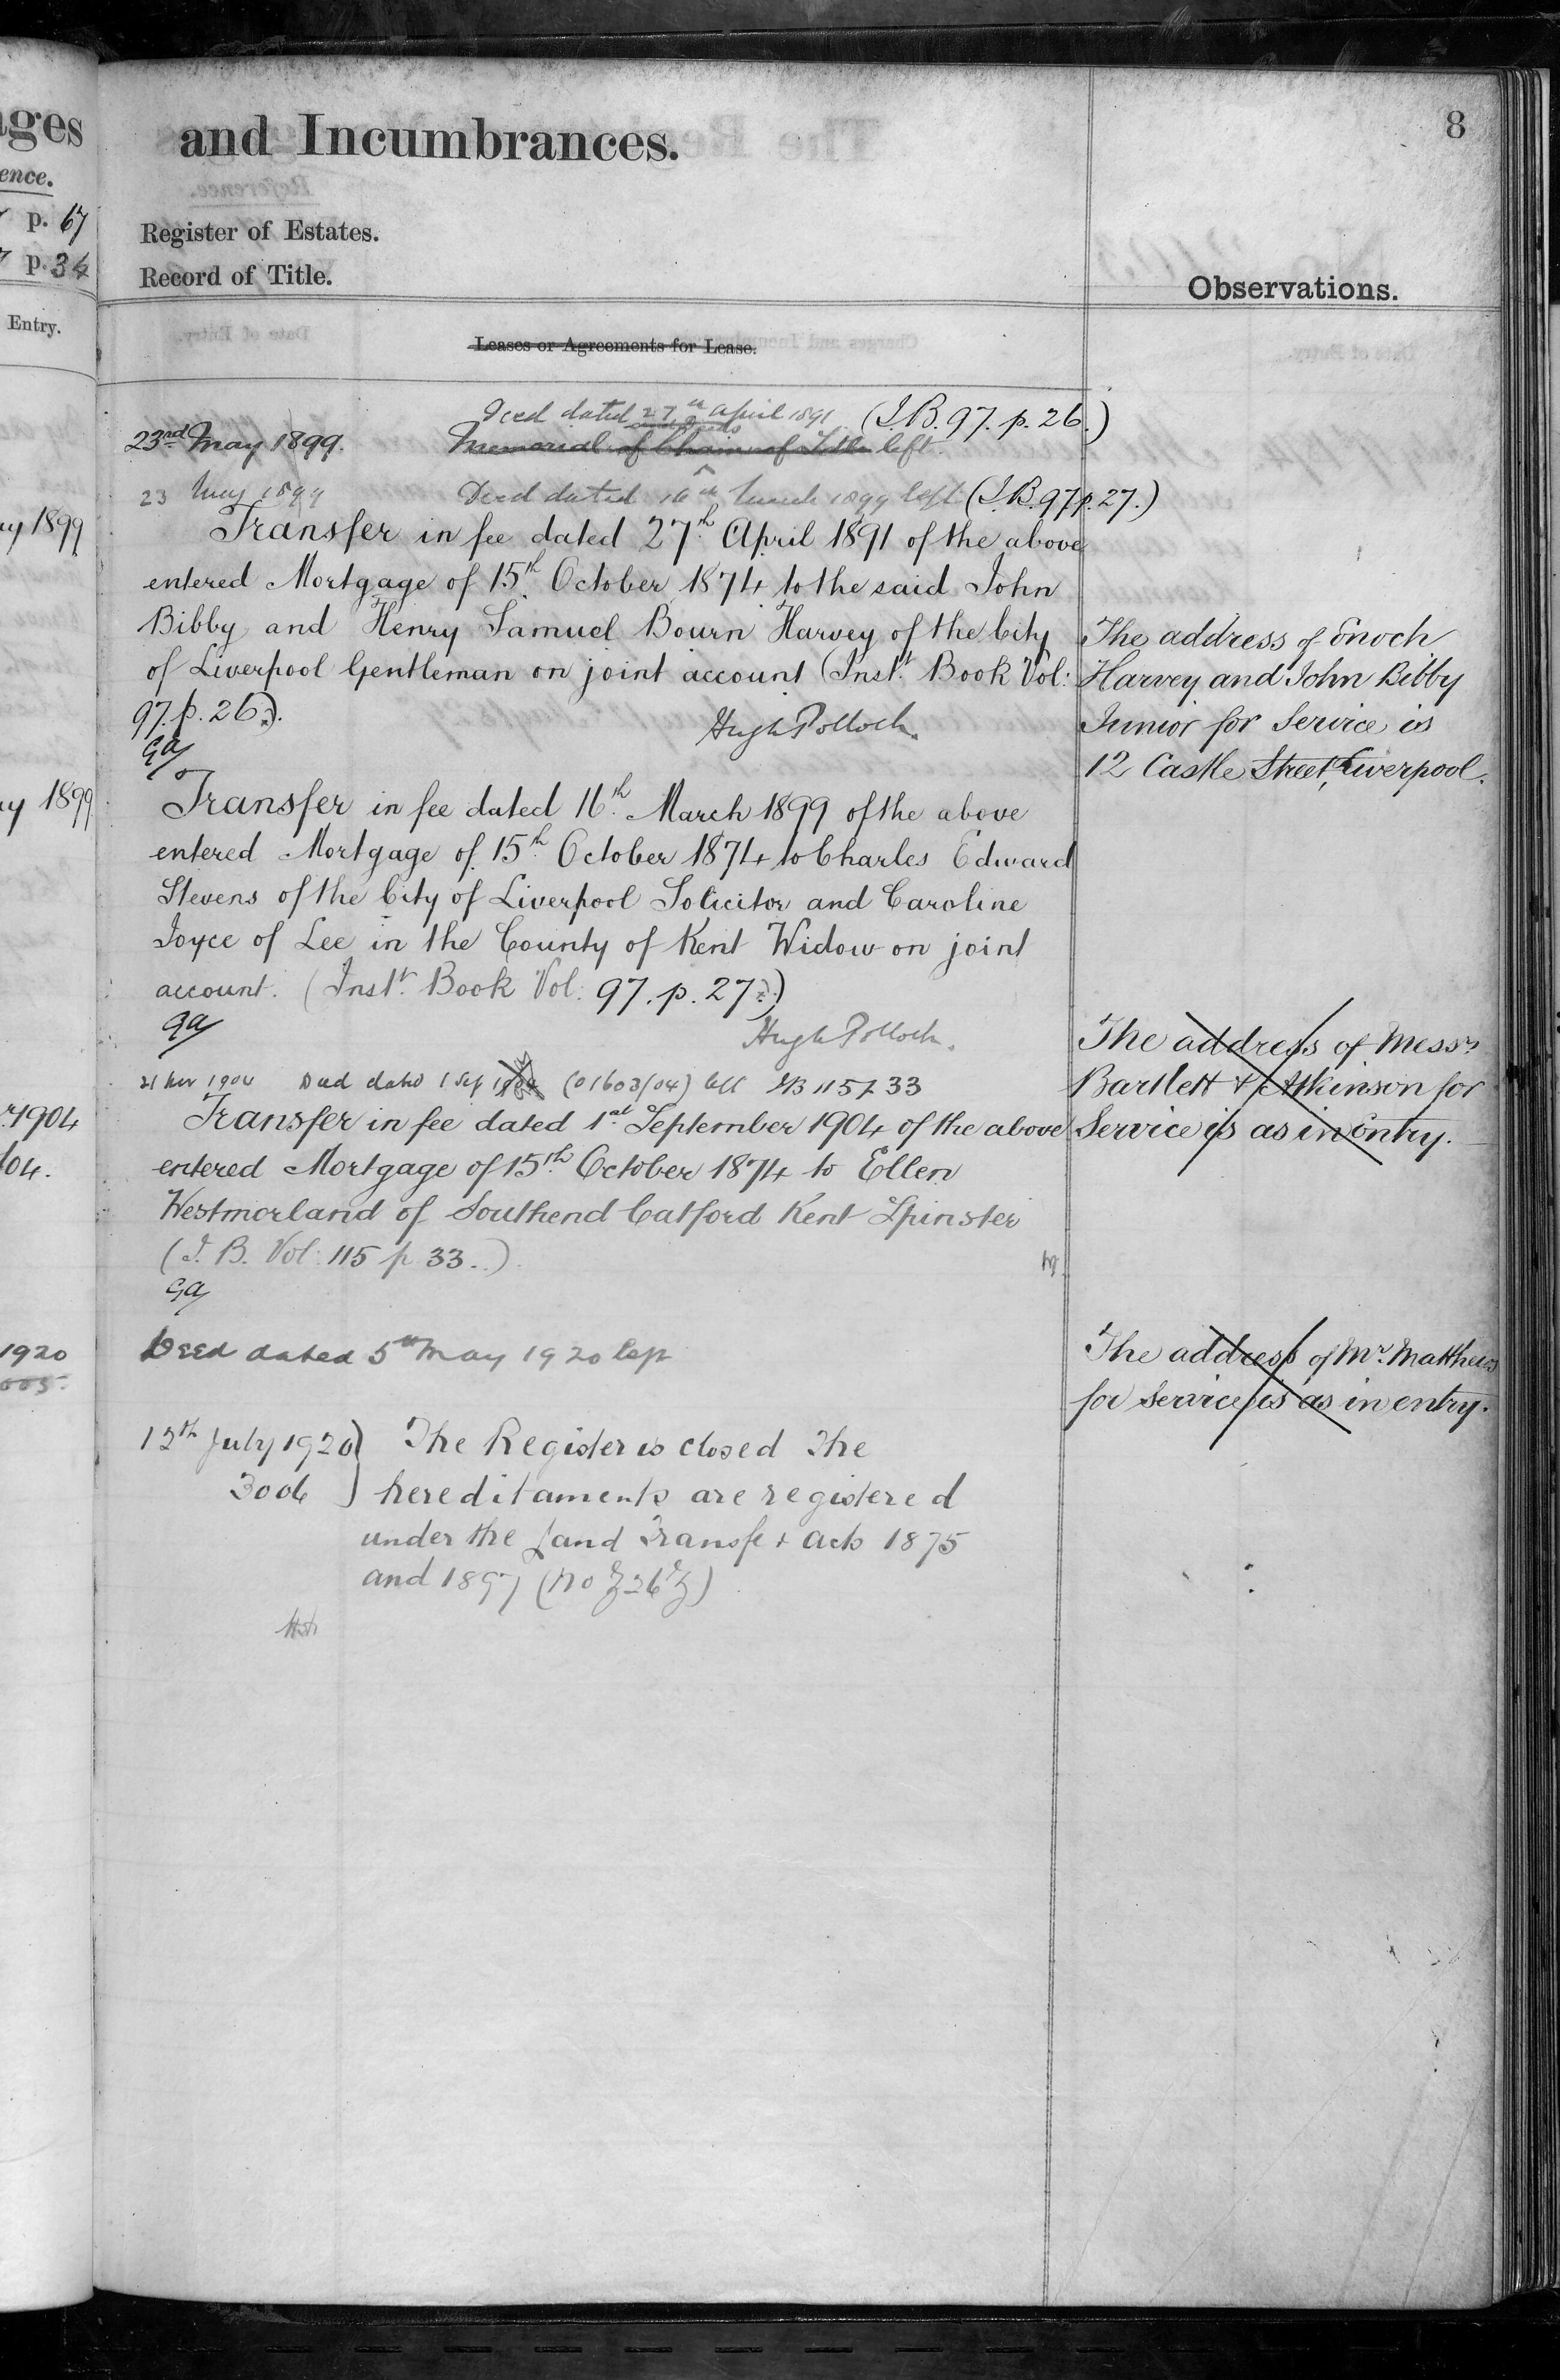 ages
and Incumbrances.
8
ence.
p. 67
Register of Estates.
p. 34
Record of Title.
Observations.
Entry.
Leases or Agreements for Lease.
Deed dated 27th April 1891 (I.B. 97. p. 26.)
23rd May 1899. Memorial of Chain of Title left.
23 May 1899 Deed dated 16th March 1899 left (I.B. 97 p. 27.)
ay 1899
Transfer in fee dated 27th April 1891 of the above
entered Mortgage of 15th October 1874 to the said John
Bibby and Henry Samuel Bourn Harvey of the City
of Liverpool Gentleman on joint account (Instt. Book Vol:
97. p. 26.).
Hugh Pollock.
Ga
The address of Enoch
Harvey and John Bibby
Junior for Service is
12 Castle Street, Liverpool.
ay 1899
Transfer in fee dated 16th March 1899 of the above
entered Mortgage of 15th October 1874 to Charles Edward
Stevens of the City of Liverpool Solicitor and Caroline
Joyce of Lee in the County of Kent Widow on joint
account. (Instr. Book Vol: 97. p. 27.)
Ga
Hugh Pollock.
The address of Messrs
Bartlett & Atkinson for
Service is as in Entry.
21 Nov 1904 Deed dated 1 Sep 1904 (01603/04) left IB 115 p 33
1904
/04.
Transfer in fee dated 1st September 1904 of the above
entered Mortgage of 15th October 1874 to Ellen
Westmorland of Southend Catford Kent Spinster
(I. B. Vol: 115 p 33.)
Ga
1920
Deed dated 5th May 1920 left
The address of Mr. Matthews
for service is as in entry.
12th July 1920) The Register is closed The
3006 ) hereditaments are registered
under the Land Transfer Acts 1875
and 1897